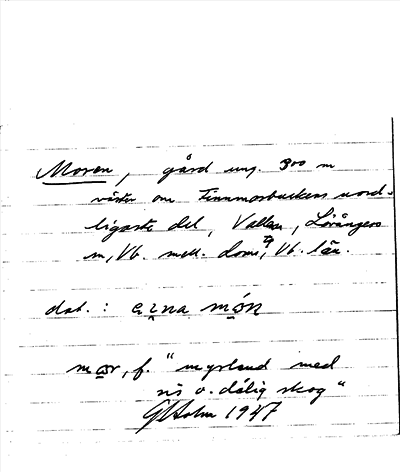 Moren, gård ung. 300 m
väster om Finnmorbackens nord-
ligaste del, Vallen, Lövångers
sn, Vb. mell. doms, Vb. län.
dat.: na mǫ́n
mor, f. "myrland med
ris o. dålig skog"
G Holm 1947